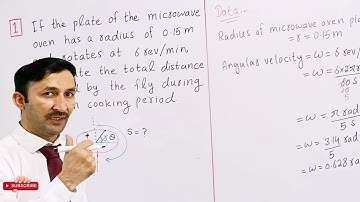 1 If the plate of the microwave
oven has a radius of 0.15 m
rotates at 6 rev/min
te the total distance
by the fly during
cooking period
S = ?
θ
Data:-
Radius of microwave oven pl
= r = 0.15 m
Angular velocity = ω = 6 rev/
= ω = 6x2π
60 s
10
5
= ω = π rad
5 s
= ω = 3.14 rad
5
= ω = 0.628 rad
SUBSCRIBE